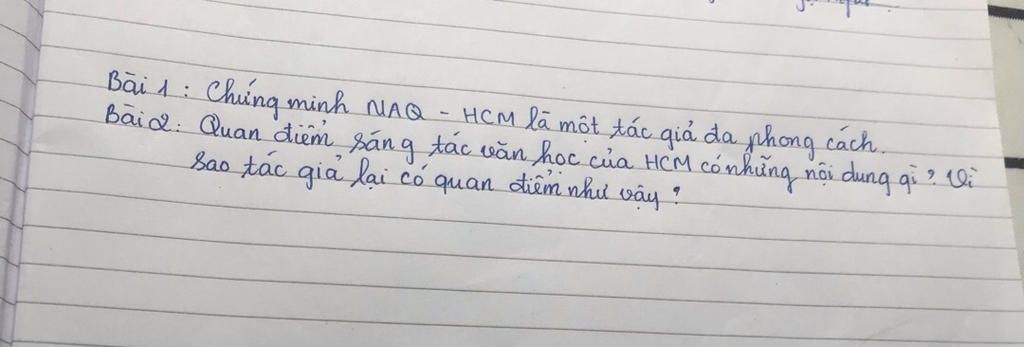 Bài 1: Chứng minh NAQ - HCM là một tác giả đa phong cách.
Bài 2: Quan điểm sáng tác văn học của HCM có những nội dung gì? Vì
sao tác giả lại có quan điểm như vậy?